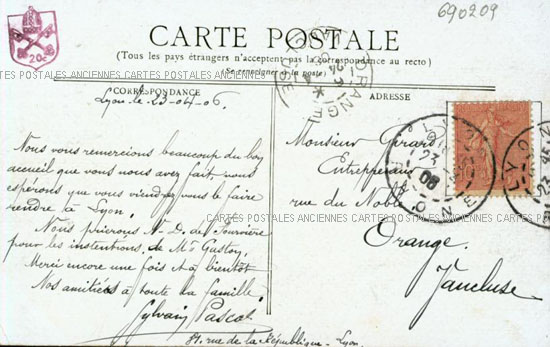 690209
20c
CARTE POSTALE
(Tous les pays étrangers n'acceptent pas la correspondance au recto)
(Se renseigner à la poste)
CARTES POSTALES ANCIENNES CARTES POSTALES ANCIENNES CARTES POSTALES ANCIENNES CARTES POSTALES ANCIENNES
CORRESPONDANCE
ADRESSE
Lyon le 23-04-06.
ORANGE
VAUCLUSE
Nous vous remercions beaucoup du bon
accueil que vous nous avez fait, nous
esperons que vous viendrez nous le faire
rendre à Lyon.
Nous prierons N-D. de Fourvière
pour les intentions de Mr Guston,
Merci encore une fois et à bientôt
Nos amitiés à toute du famille
Sylvain Pascal
rue de la République - Lyon.
Monsieur Girard
Entrepreneur
rue du Noble
Orange.
Vaucluse
CARTES POSTALES ANCIENNES CARTES POSTALES ANCIENNES CARTES POSTALES ANCIENNES
LYON
23
06
LYO
23